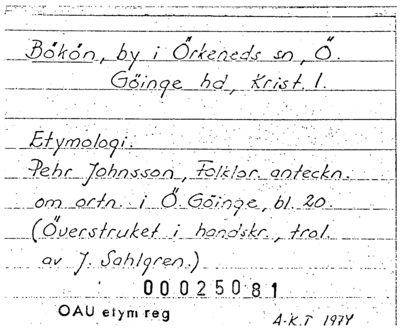 Bökön, by i Örkeneds sn, Ö.
Göinge hd, Krist. l.
Etymologi.
Pehr Johnsson, Folklor. anteckn.
om ortn. i Ö. Göinge, bl. 20.
(Överstruket i handskr., trol.
av J. Sahlgren.)
00025081
OAU etym reg
A-K.T 1974